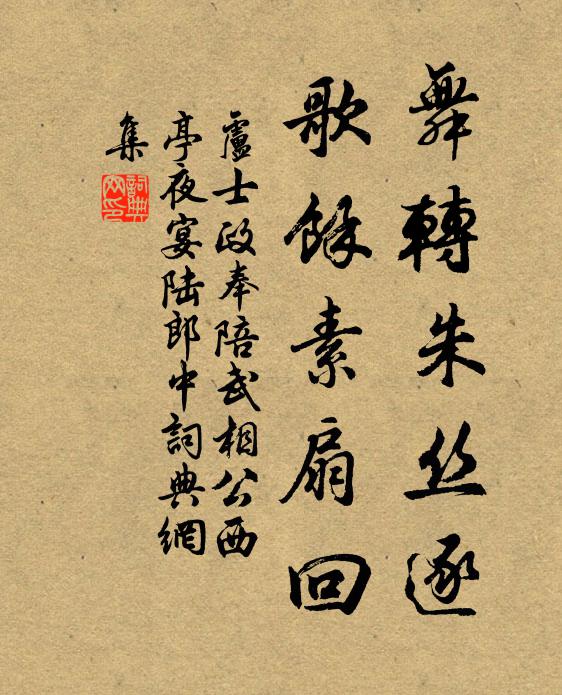 舞轉朱丝逐
歌餘素扇回
盧士政奉陪武相公西
亭夜宴陆郎中詞典網
集
詞典
网印